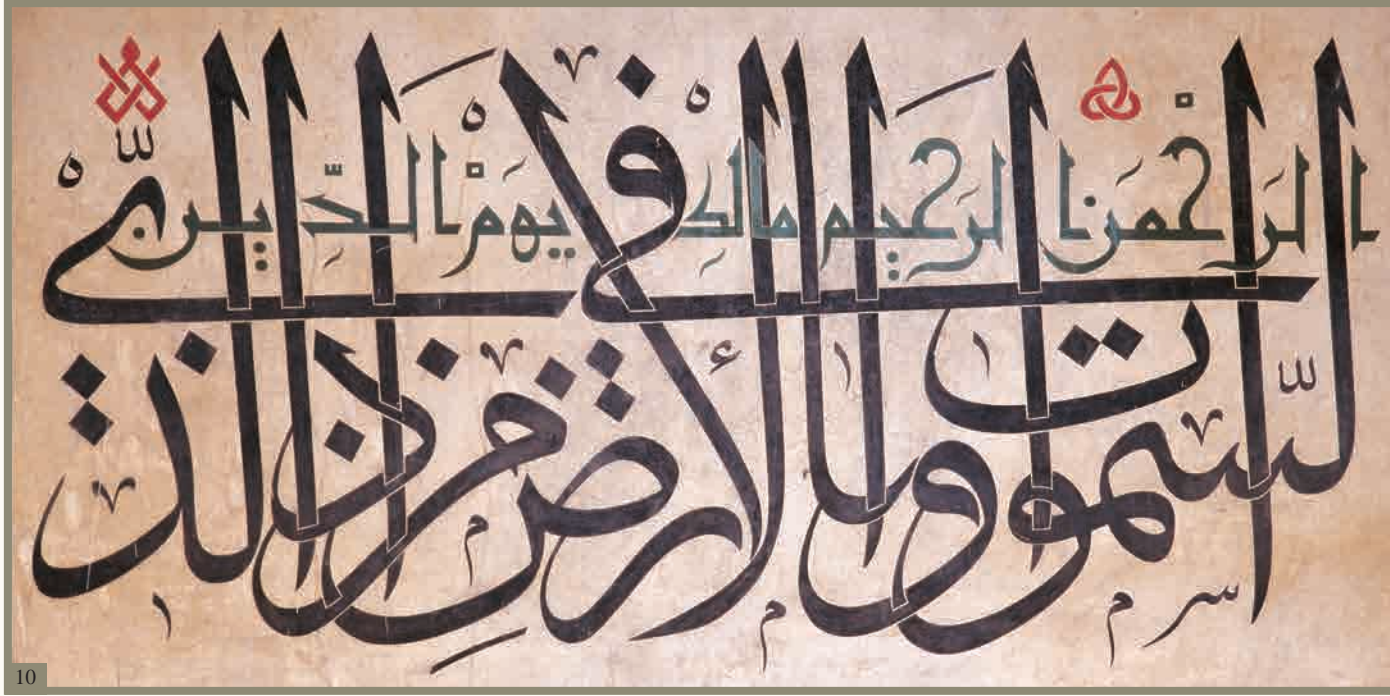 الرَّحْمنِ الرَّحِيمِ مَالِكِ يَوْمِ الدِّينِ
السموات وما في الأرض من ذا الذي
10